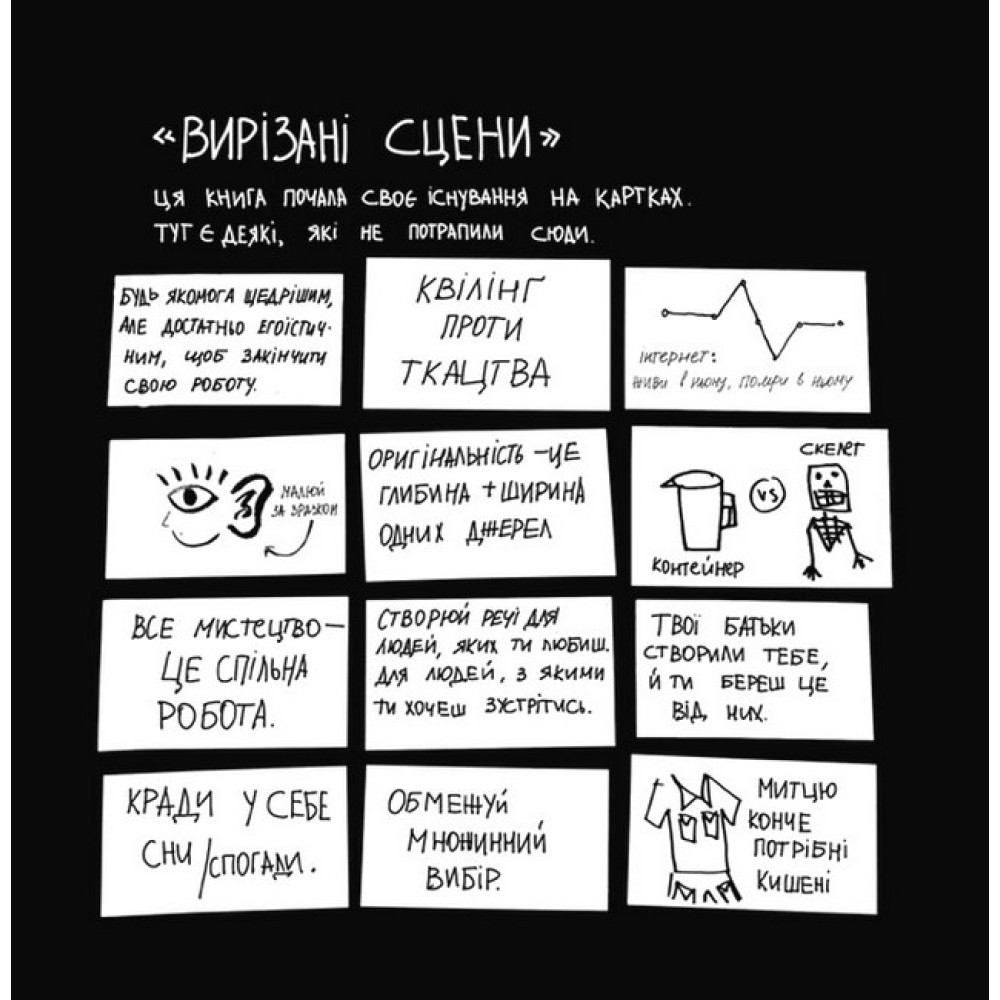 «ВИРІЗАНІ СЦЕНИ»
ЦЯ КНИГА ПОЧАЛА СВОЄ ІСНУВАННЯ НА КАРТКАХ.
ТУТ Є ДЕЯКІ, ЯКІ НЕ ПОТРАПИЛИ СЮДИ.
БУДЬ ЯКОМОГА ЩЕДРІШИМ,
АЛЕ ДОСТАТНЬО ЕГОЇСТИЧ-
НИМ, ЩОБ ЗАКІНЧИТИ
СВОЮ РОБОТУ.
КВІЛІНГ
ПРОТИ
ТКАЦТВА
інтернет:
живи в ньому, помри в ньому
МАЛЮЙ
ЗА ЗРАЗКОМ
ОРИГІНАЛЬНІСТЬ – ЦЕ
ГЛИБИНА + ШИРИНА
ОДНИХ ДЖЕРЕЛ
КОНТЕЙНЕР
VS
СКЕЛЕТ
ВСЕ МИСТЕЦТВО –
ЦЕ СПІЛЬНА
РОБОТА.
СТВОРЮЙ РЕЧІ ДЛЯ
ЛЮДЕЙ, ЯКИХ ТИ ЛЮБИШ.
ДЛЯ ЛЮДЕЙ, З ЯКИМИ
ТИ ХОЧЕШ ЗУСТРІТИСЬ.
ТВОЇ БАТЬКИ
СТВОРИЛИ ТЕБЕ,
Й ТИ БЕРЕШ ЦЕ
ВІД НИХ.
КРАДИ У СЕБЕ
СНИ/СПОГАДИ.
ОБМЕЖУЙ
МНОЖИННИЙ
ВИБІР.
МИТЦЮ
КОНЧЕ
ПОТРІБНІ
КИШЕНІ